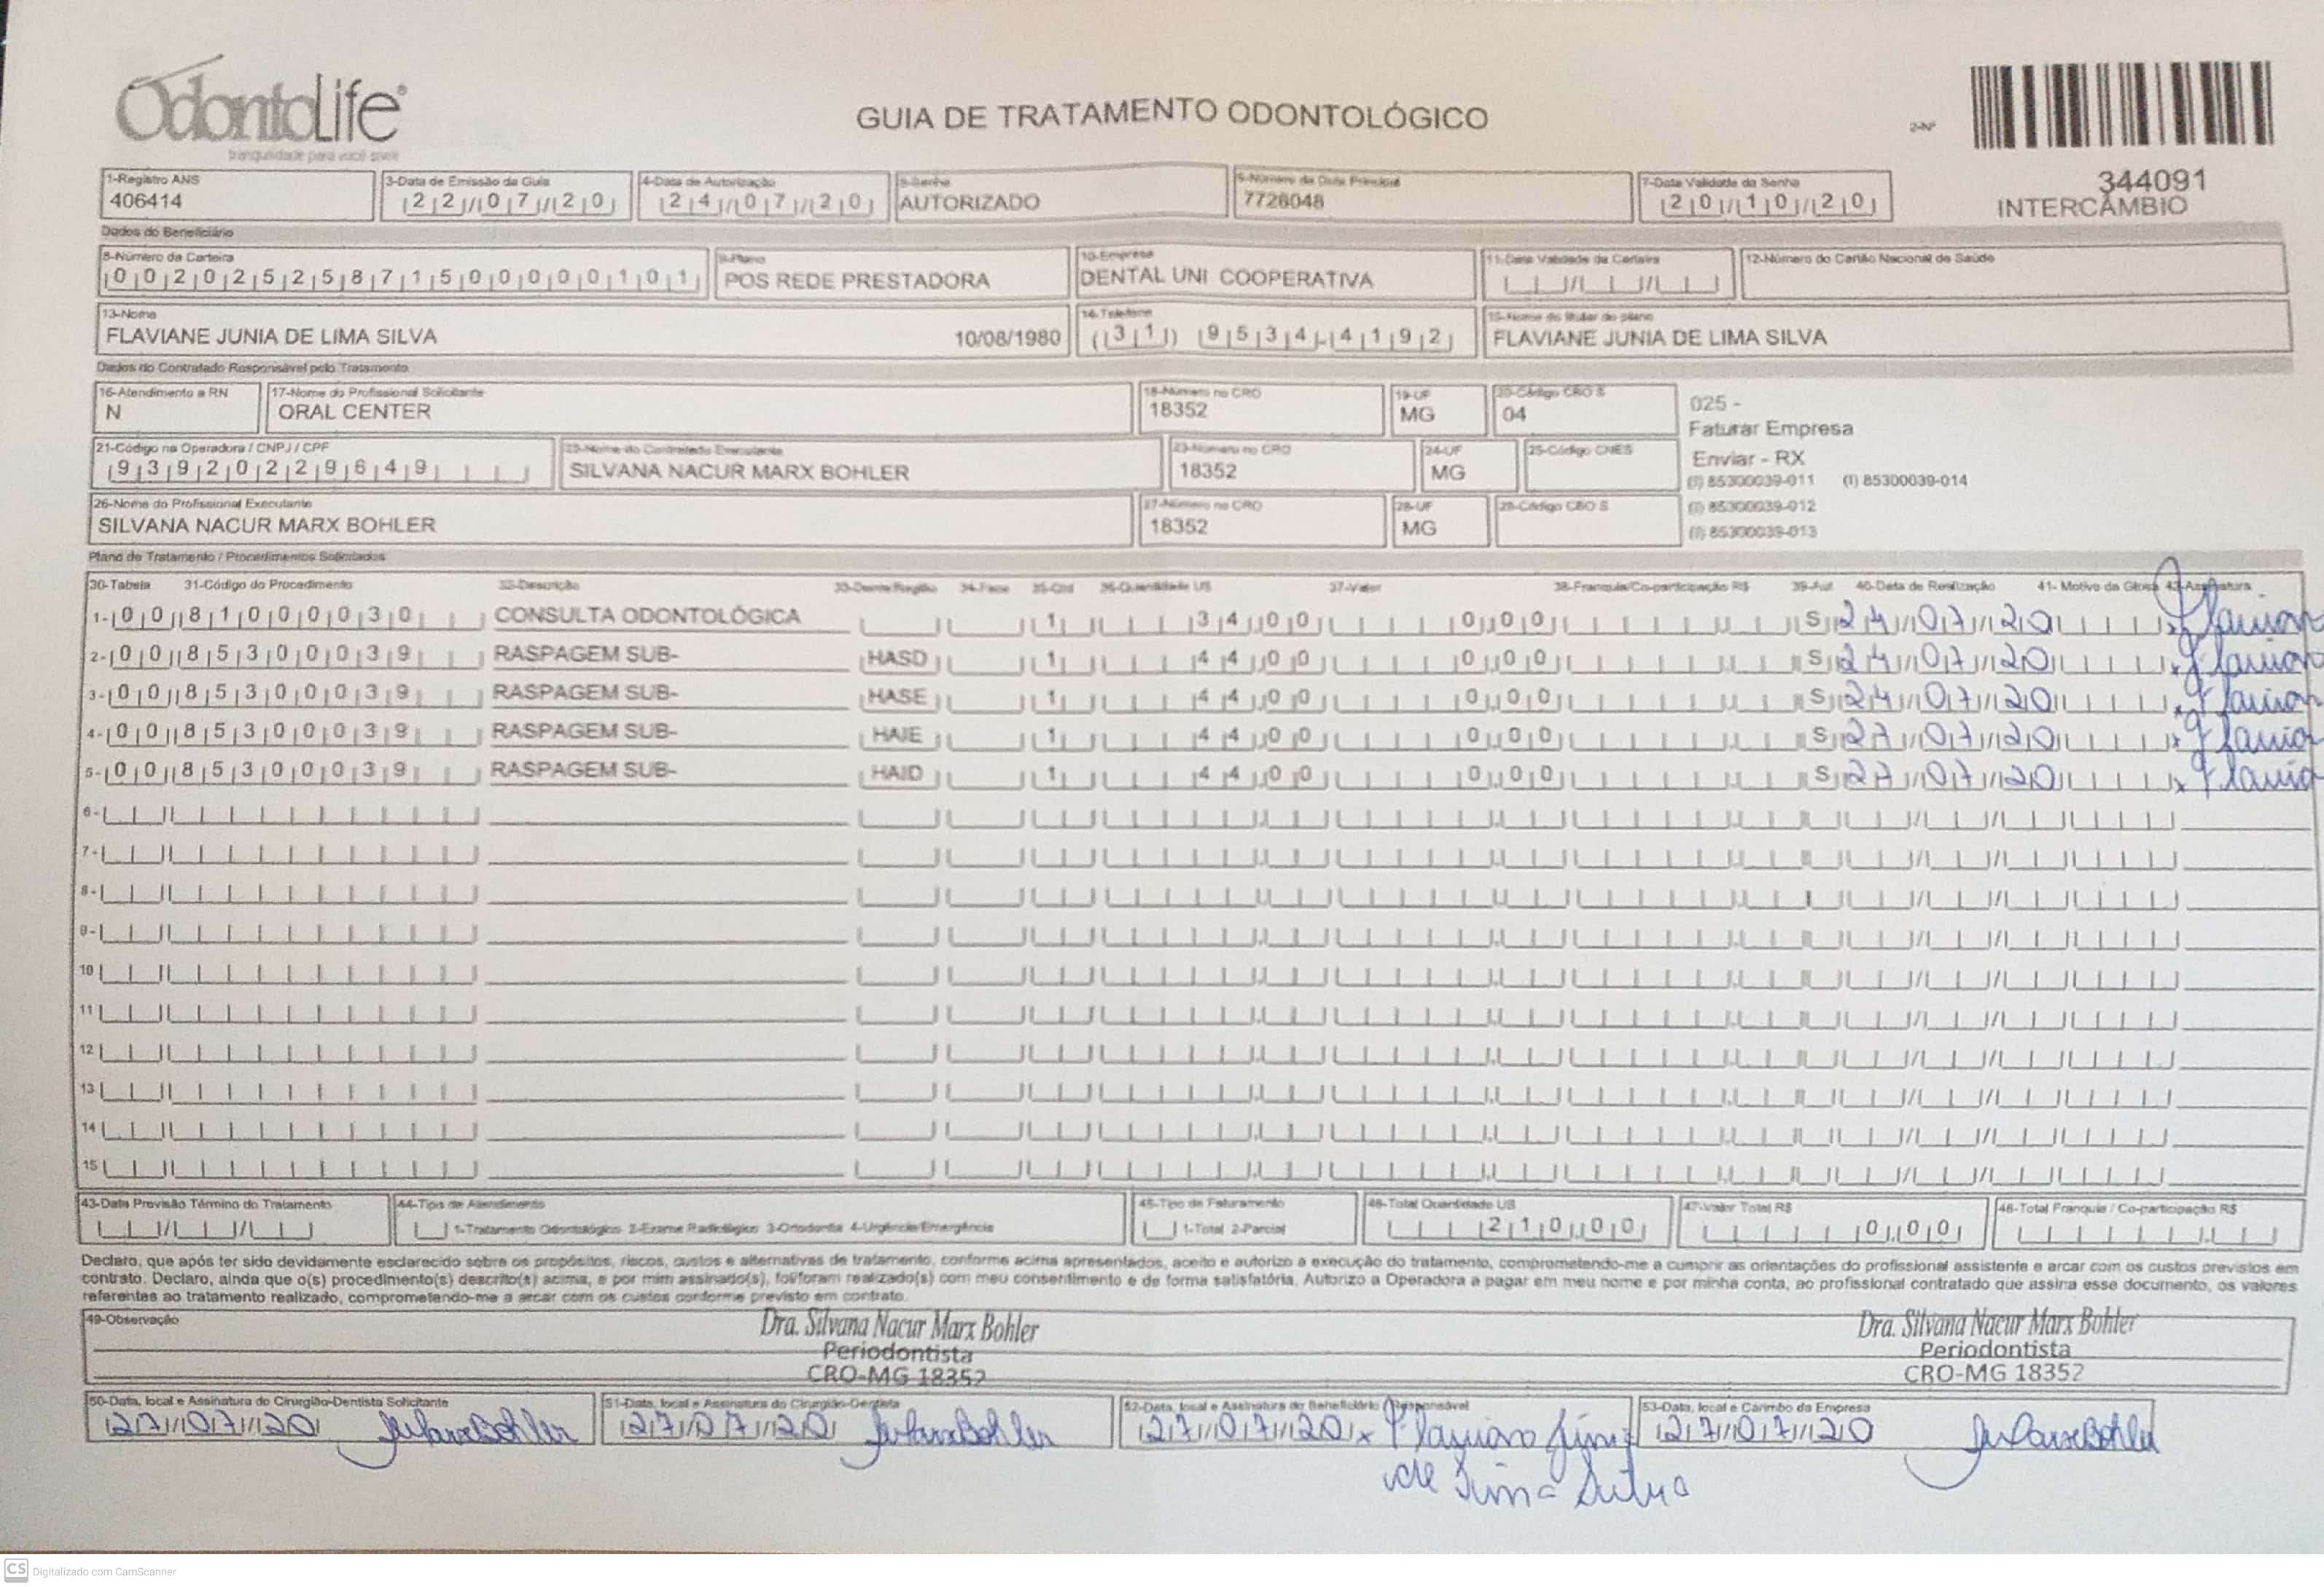 OdontoLife®
tranquilidade para você sorrir
GUIA DE TRATAMENTO ODONTOLÓGICO
2-Nº
344091
INTERCÂMBIO
1-Registro ANS
406414
3-Data de Emissão da Guia
22/07/20
4-Data de Autorização
24/07/20
5-Senha
AUTORIZADO
6-Número da Guia Principal
7726048
7-Data Validade da Senha
20/10/20
Dados do Beneficiário
8-Número da Carteira
00202525871500000101
9-Plano
POS REDE PRESTADORA
10-Empresa
DENTAL UNI COOPERATIVA
11-Data Validade da Carteira
12-Número do Cartão Nacional de Saúde
13-Nome
FLAVIANE JUNIA DE LIMA SILVA 10/08/1980
14-Telefone
(31) 9534-4192
15-Nome do titular do plano
FLAVIANE JUNIA DE LIMA SILVA
Dados do Contratado Responsável pelo Tratamento
16-Atendimento a RN
N
17-Nome do Profissional Solicitante
ORAL CENTER
18-Número no CRO
18352
19-UF
MG
20-Código CBO S
04
025 -
Faturar Empresa
Enviar - RX
(I) 85300039-011 (I) 85300039-014
(I) 85300039-012
(I) 85300039-013
21-Código na Operadora / CNPJ / CPF
93920229649
22-Nome do Contratado Executante
SILVANA NACUR MARX BOHLER
23-Número no CRO
18352
24-UF
MG
25-Código CNES
26-Nome do Profissional Executante
SILVANA NACUR MARX BOHLER
27-Número no CRO
18352
28-UF
MG
29-Código CBO S
Plano de Tratamento / Procedimentos Solicitados
30-Tabela 31-Código do Procedimento 32-Descrição 33-Dente/Região 34-Face 35-Qtd 36-Quantidade US 37-Valor 38-Franquia/Co-participação R$ 39-Aut 40-Data de Realização 41- Motivo da Glosa 42-Assinatura
1- 00 81000030 CONSULTA ODONTOLÓGICA 1 34,00 0,00 S 24/07/20
2- 00 85300039 RASPAGEM SUB- HASD 1 44,00 0,00 S 24/07/20
3- 00 85300039 RASPAGEM SUB- HASE 1 44,00 0,00 S 24/07/20
4- 00 85300039 RASPAGEM SUB- HAIE 1 44,00 0,00 S 27/07/20
5- 00 85300039 RASPAGEM SUB- HAID 1 44,00 0,00 S 27/07/20
6-
7-
8-
9-
10
11
12
13
14
15
43-Data Previsão Término do Tratamento
44-Tipo de Atendimento
1-Tratamento Odontológico 2-Exame Radiológico 3-Ortodontia 4-Urgência/Emergência
45-Tipo de Faturamento
1-Total 2-Parcial
46-Total Quantidade US
210,00
47-Valor Total R$
0,00
48-Total Franquia / Co-participação R$
Declaro, que após ter sido devidamente esclarecido sobre os propósitos, riscos, custos e alternativas de tratamento, conforme acima apresentados, aceito e autorizo a execução do tratamento, comprometendo-me a cumprir as orientações do profissional assistente e arcar com os custos previstos em
contrato. Declaro, ainda que o(s) procedimento(s) descrito(s) acima, e por mim assinado(s), foi/foram realizado(s) com meu consentimento e de forma satisfatória. Autorizo a Operadora a pagar em meu nome e por minha conta, ao profissional contratado que assina esse documento, os valores
referentes ao tratamento realizado, comprometendo-me a arcar com os custos conforme previsto em contrato.
49-Observação
Dra. Silvana Nacur Marx Bohler
Periodontista
CRO-MG 18352
Dra. Silvana Nacur Marx Bohler
Periodontista
CRO-MG 18352
50-Data, local e Assinatura do Cirurgião-Dentista Solicitante
27/07/20
51-Data, local e Assinatura do Cirurgião-Dentista
27/07/20
52-Data, local e Assinatura do Beneficiário / Responsável
27/07/20 x
de Lima Silva
53-Data, local e Carimbo da Empresa
27/07/20
CS Digitalizado com CamScanner